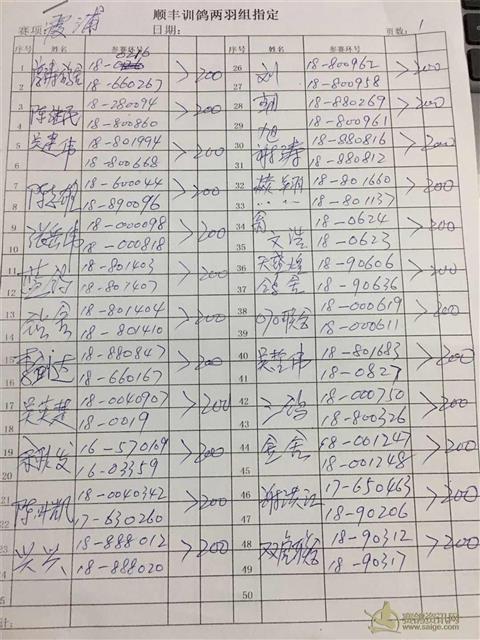 顺丰训鸽两羽组指定
赛项: 霞浦 日期: 页数: 1
序号 姓名 参赛环号 序号 姓名 参赛环号
1 18-0216 >200 26 刘 18-800962 >200
2 18-660267 27 18-800958
3 陈建民 18-280094 >200 28 朝 18-880269 >200
4 18-800860 29 旭 18-800961
5 吴建伟 18-801994 >200 30 谢涛 18-880816 >200
6 18-800668 31 18-880812
7 陈志雄 18-600044 >200 32 18-801660 >200
8 18-890096 33 18-801137
9 18-000098 >200 34 翁 18-0624 >200
10 18-000818 35 文浩 18-0623
11 18-801403 >200 36 18-90606 >200
12 18-801407 37 鸽舍 18-90636
13 18-801404 >200 38 070联合 18-000619 >200
14 18-801410 39 18-000611
15 18-880847 >200 40 吴哲伟 18-801683 >200
16 18-660167 41 18-0827
17 18-0040907 >200 42 18-000750 >200
18 18-0019 43 18-800326
19 16-570109 >200 44 金舍 68-001247 >200
20 16-03359 45 18-001248
21 18-0040342 >200 46 谢洪江 17-650463 >200
22 17-630260 47 18-90206
23 兴兴 18-888012 >200 48 18-90312 >200
24 18-888020 49 18-90317
50
计:
赛鸽资讯网
www.saige.com